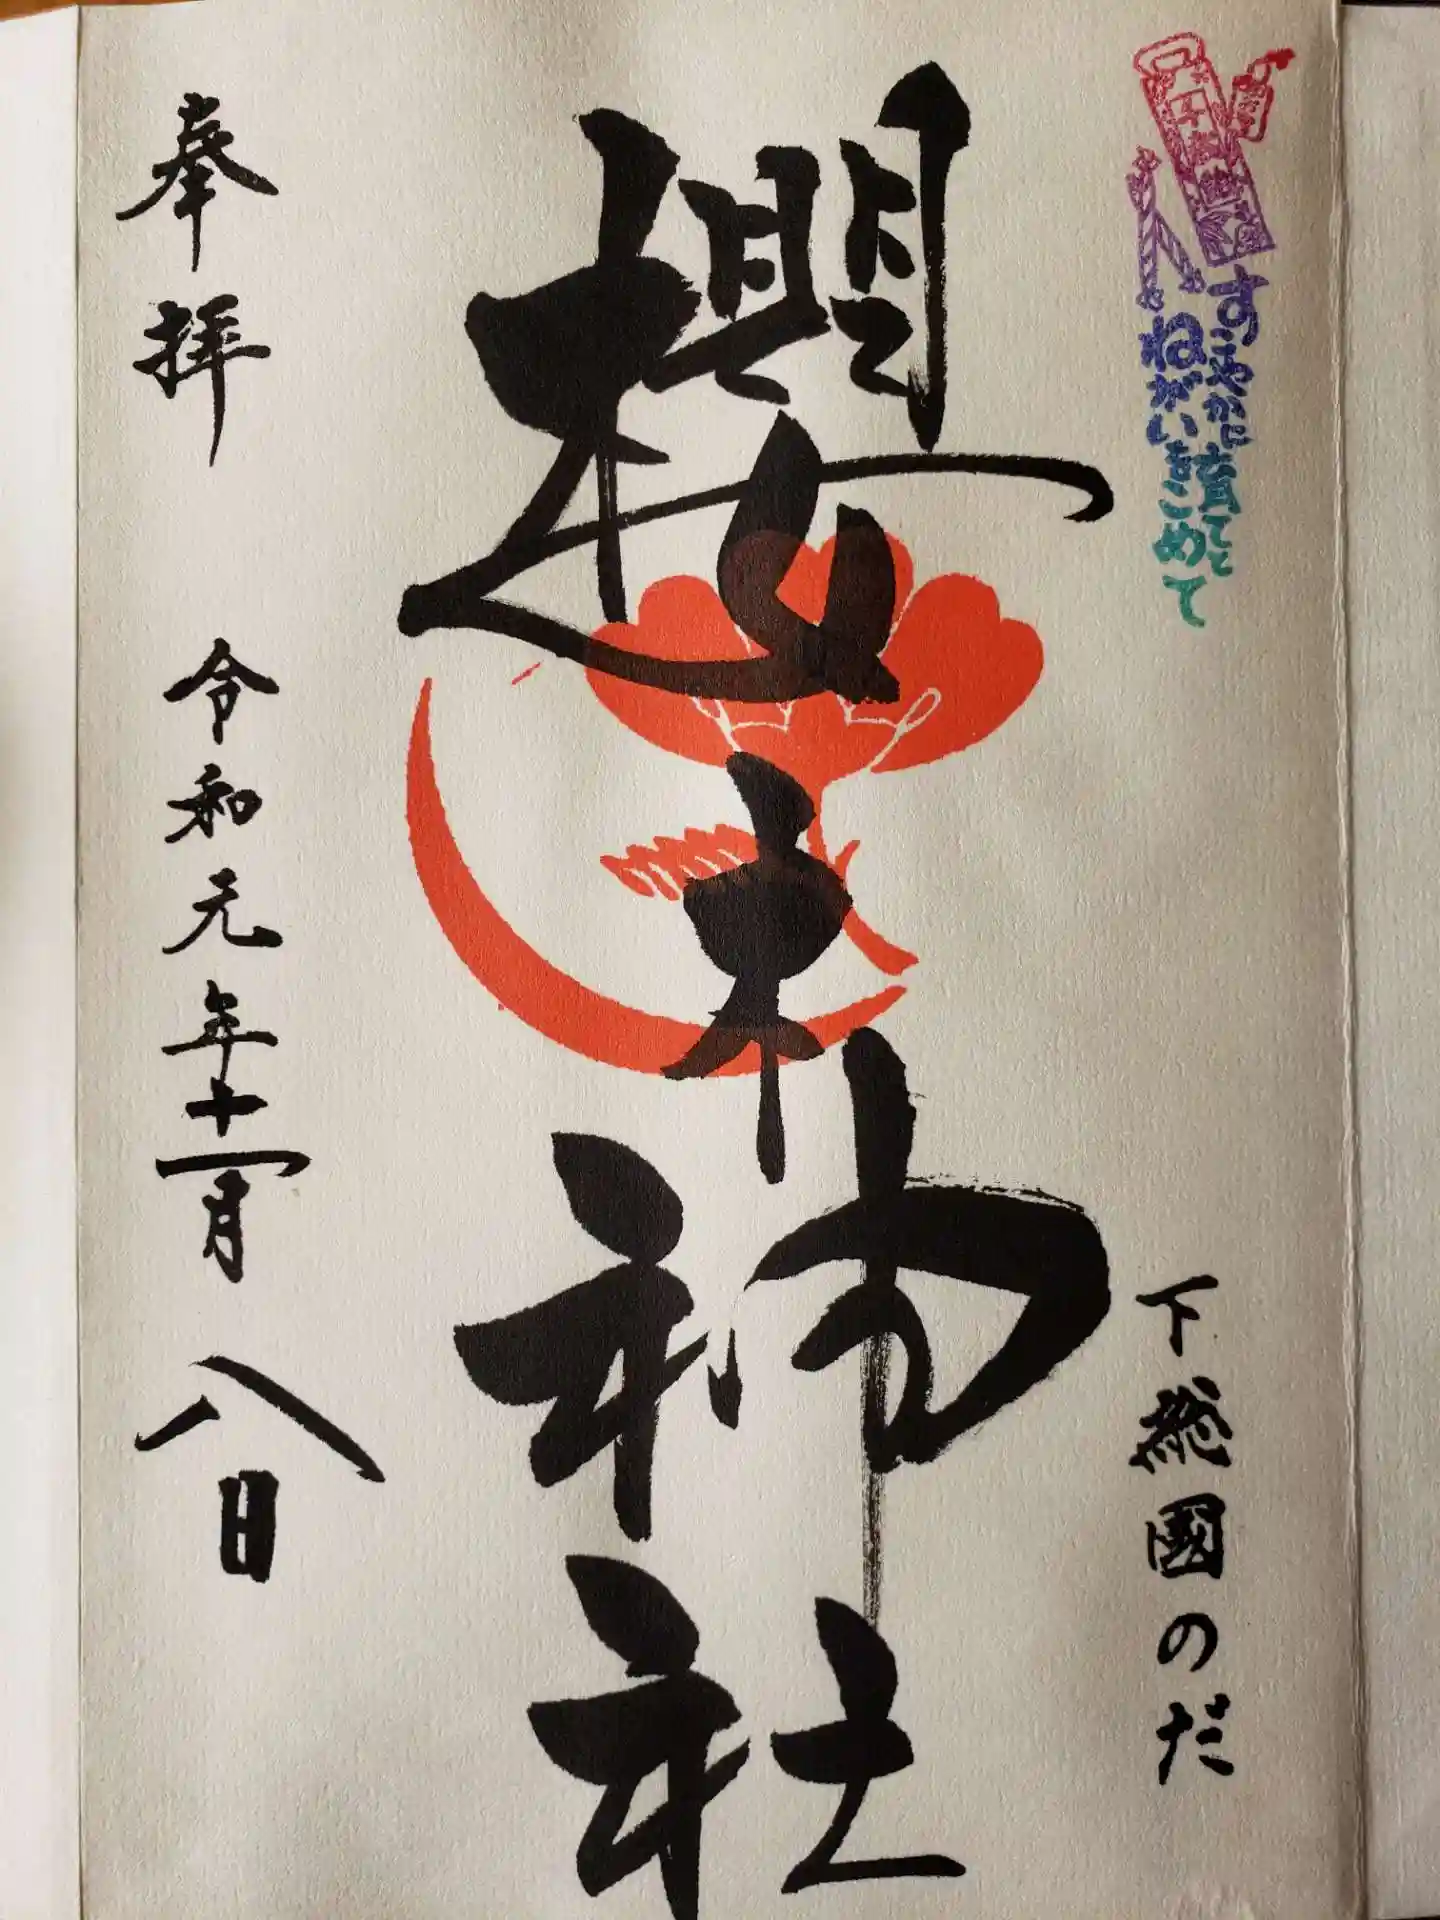 すこやかに育てと
ねがいをこめて
下総國のだ
櫻木神社
奉拝
令和元年十一月八日